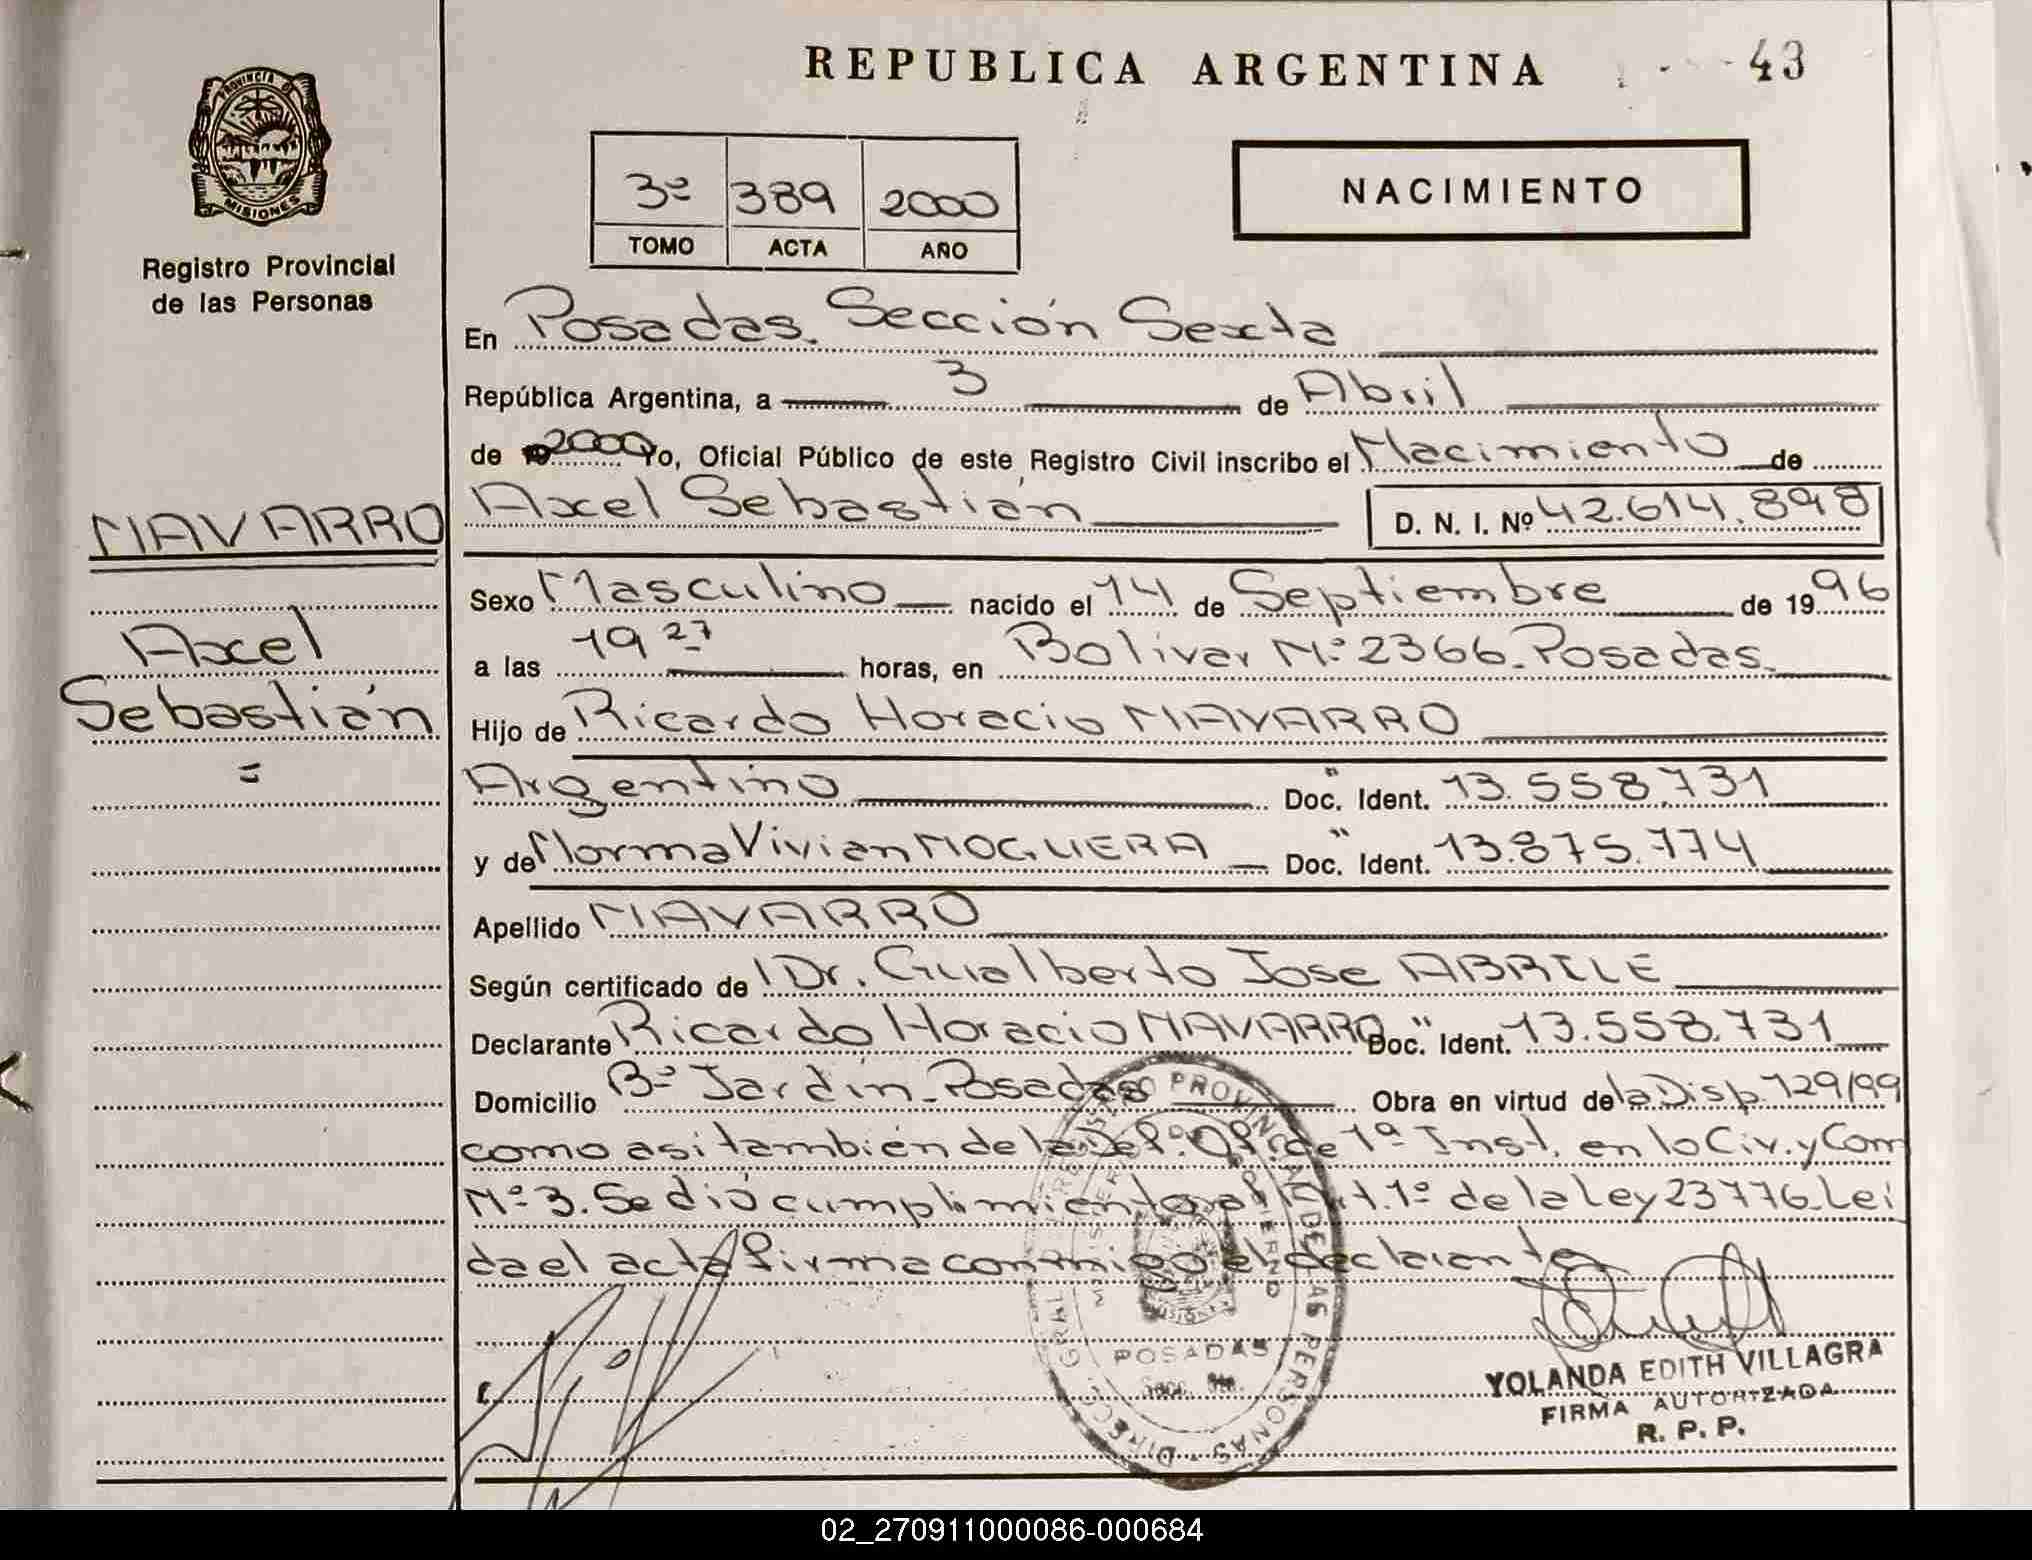 REPUBLICA ARGENTINA
43
PROVINCIA DE
MISIONES
Registro Provincial
de las Personas
3º 389 2000
TOMO ACTA AÑO
NACIMIENTO
En Posadas. Sección Sexta
República Argentina, a 3 de Abril
de 2000 Yo, Oficial Público de este Registro Civil inscribo el Nacimiento de
Axel Sebastián D. N. I. Nº 42.614.898
NAVARRO
Axel
Sebastián
Sexo Masculino nacido el 14 de Septiembre de 1996
a las 19 27 horas, en Bolivar Nº 2366. Posadas.
Hijo de Ricardo Horacio NAVARRO
Argentino Doc. Ident. 13.558.731
y de Norma Vivian NOGUERA Doc. Ident. 13.875.774
Apellido NAVARRO
Según certificado de Dr. Gualberto Jose ABRILE
Declarante Ricardo Horacio NAVARRO Doc. Ident. 13.558.731
Domicilio Bº Jardín. Posadas Obra en virtud de la Disp. 129/99
como asi también de la Def. Of. de 1ª Inst. en lo Civ. y Com
Nº 3. Se dió cumplimiento al Art. 1º de la Ley 23776. Lei
da el acta firma conmigo el declarante
DIRECC. GRAL. REGISTRO PROVINCIAL DE LAS PERSONAS
MISIONES
POSADAS
YOLANDA EDITH VILLAGRA
FIRMA AUTORIZADA
R. P. P.
02_270911000086-000684